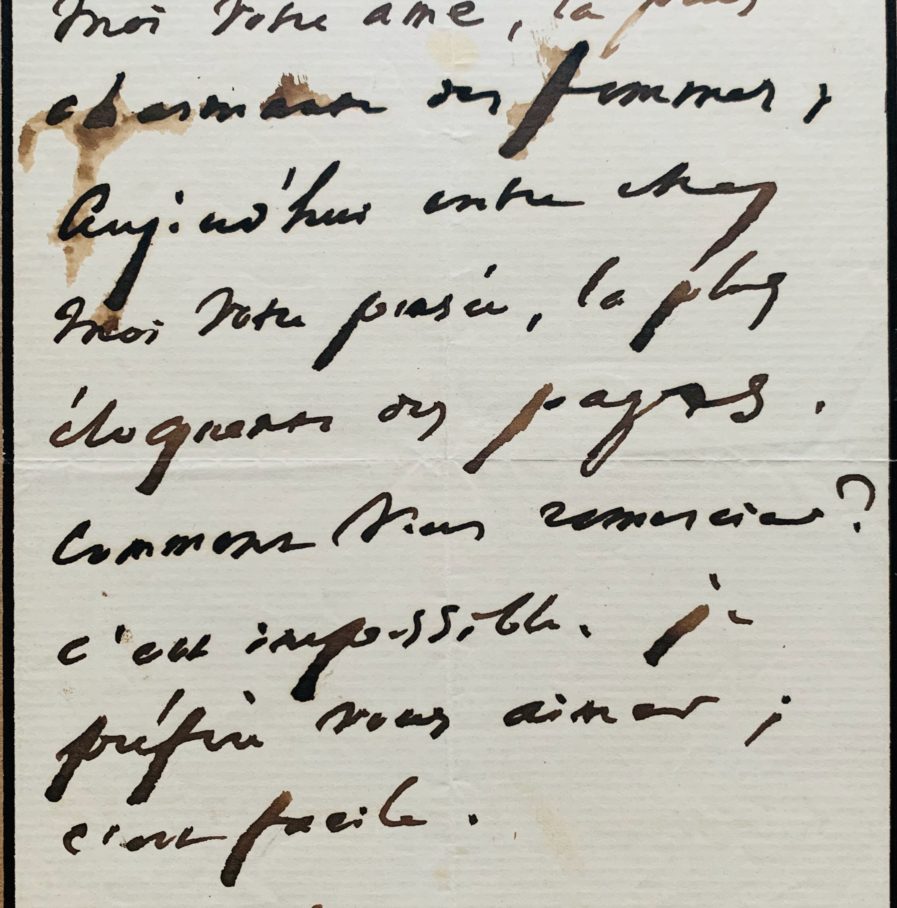 moi votre âme, la plus
charmante des femmes ;
Aujourd'hui entre chez
moi votre pensée, la plus
éloquente des pages.
Comment vous remercier ?
c'est impossible. je
préfère vous aimer ;
c'est facile.